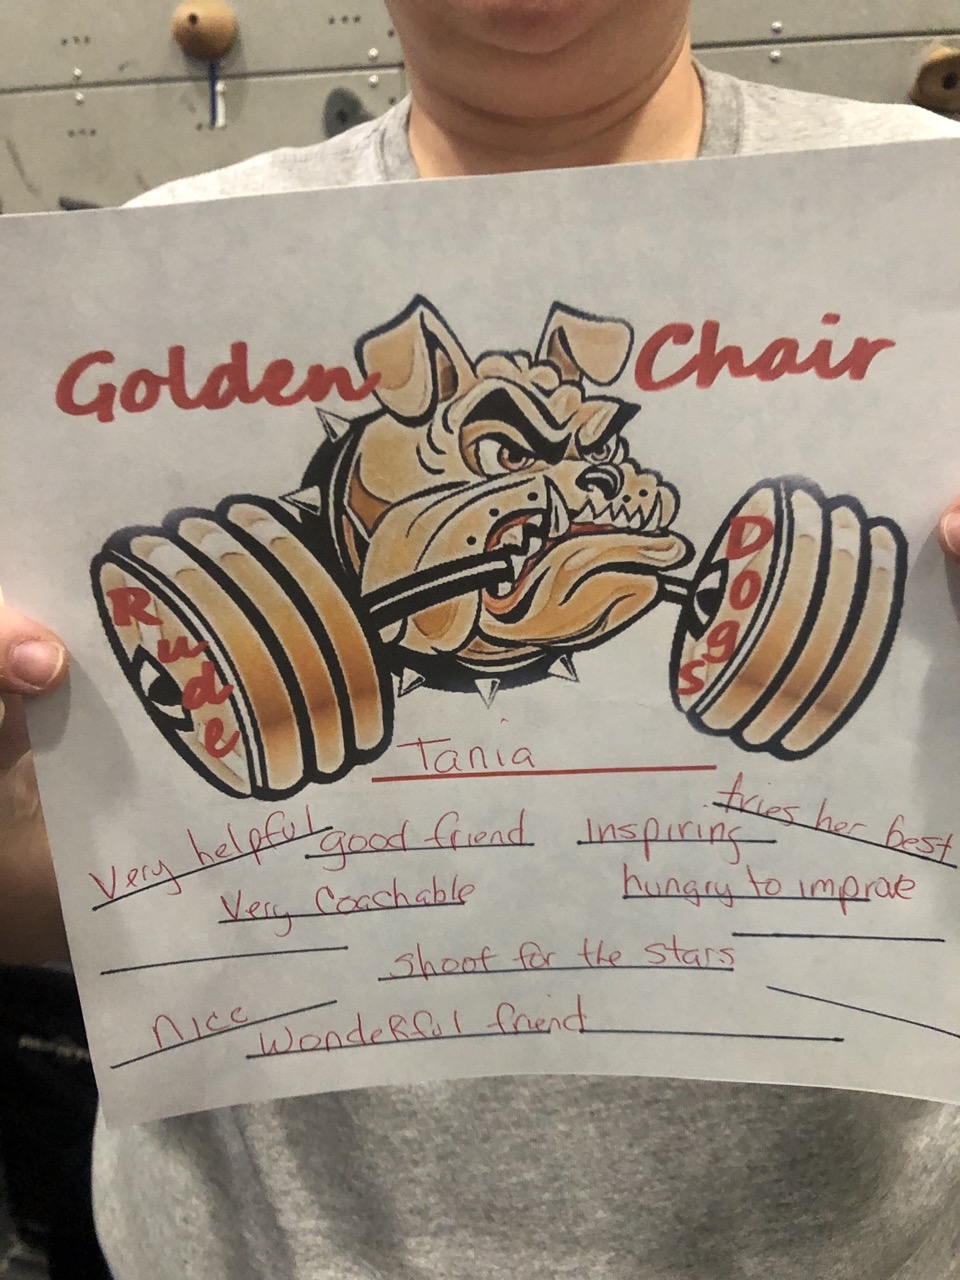 Golden Chair
Rude
Dogs
Tania
Very helpful
good friend
Inspiring
tries her best
Very Coachable
hungry to improve
Shoot for the stars
nice
Wonderful friend